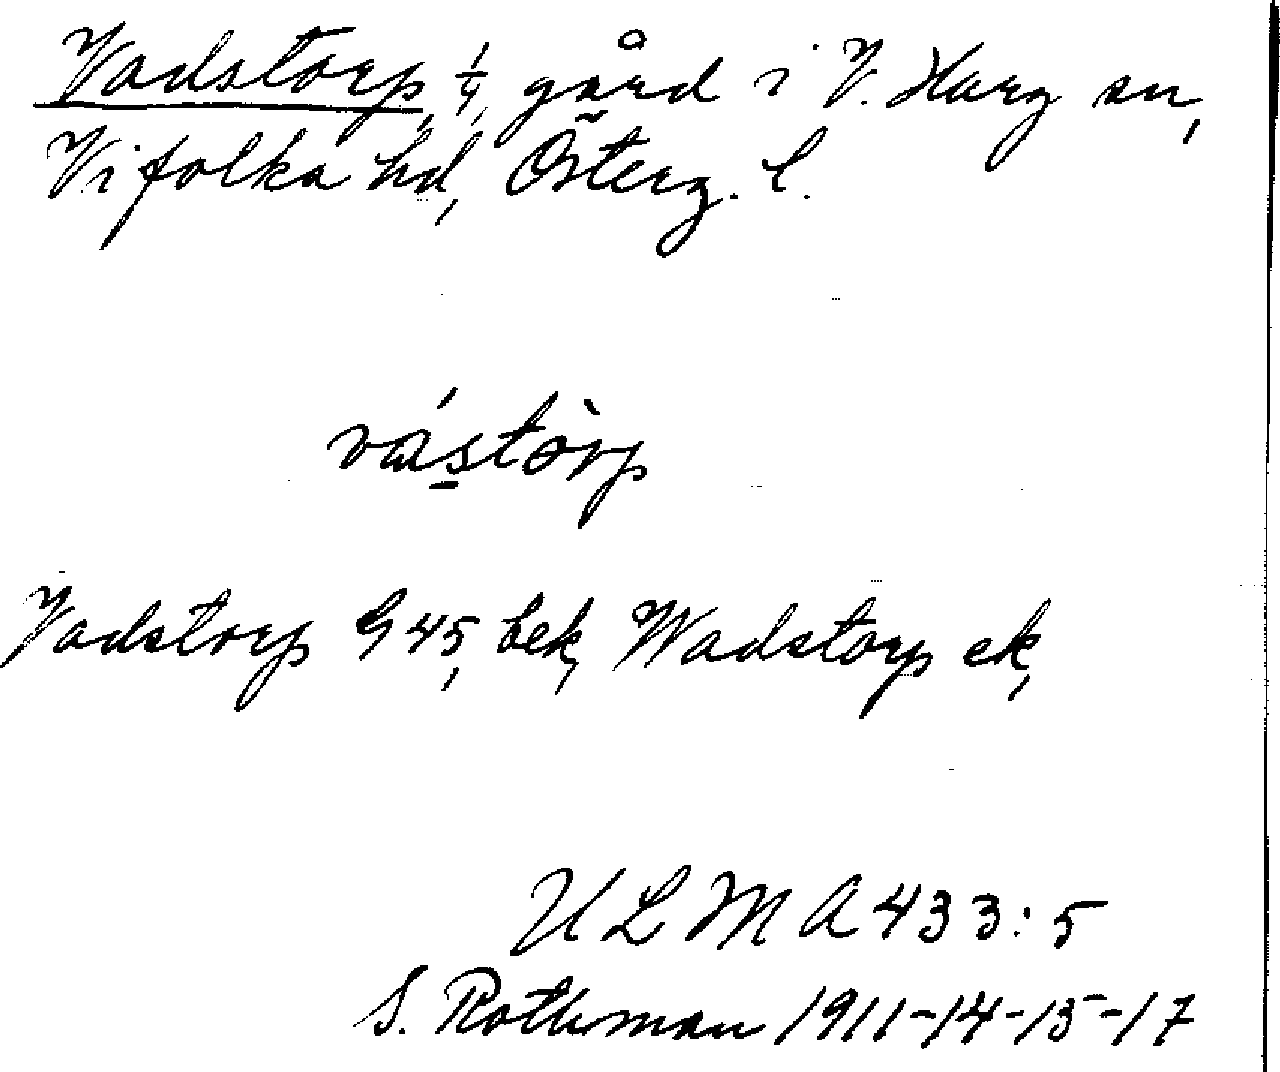 Vadstorp, 1/4 gård i V. Harg sn,
Vifolka hd, Österg. l.
vástòrp
Vadstorp G 45, bek, Wadstorp ek,
ULMA 433:5
S. Rothman 1911-14-15-17